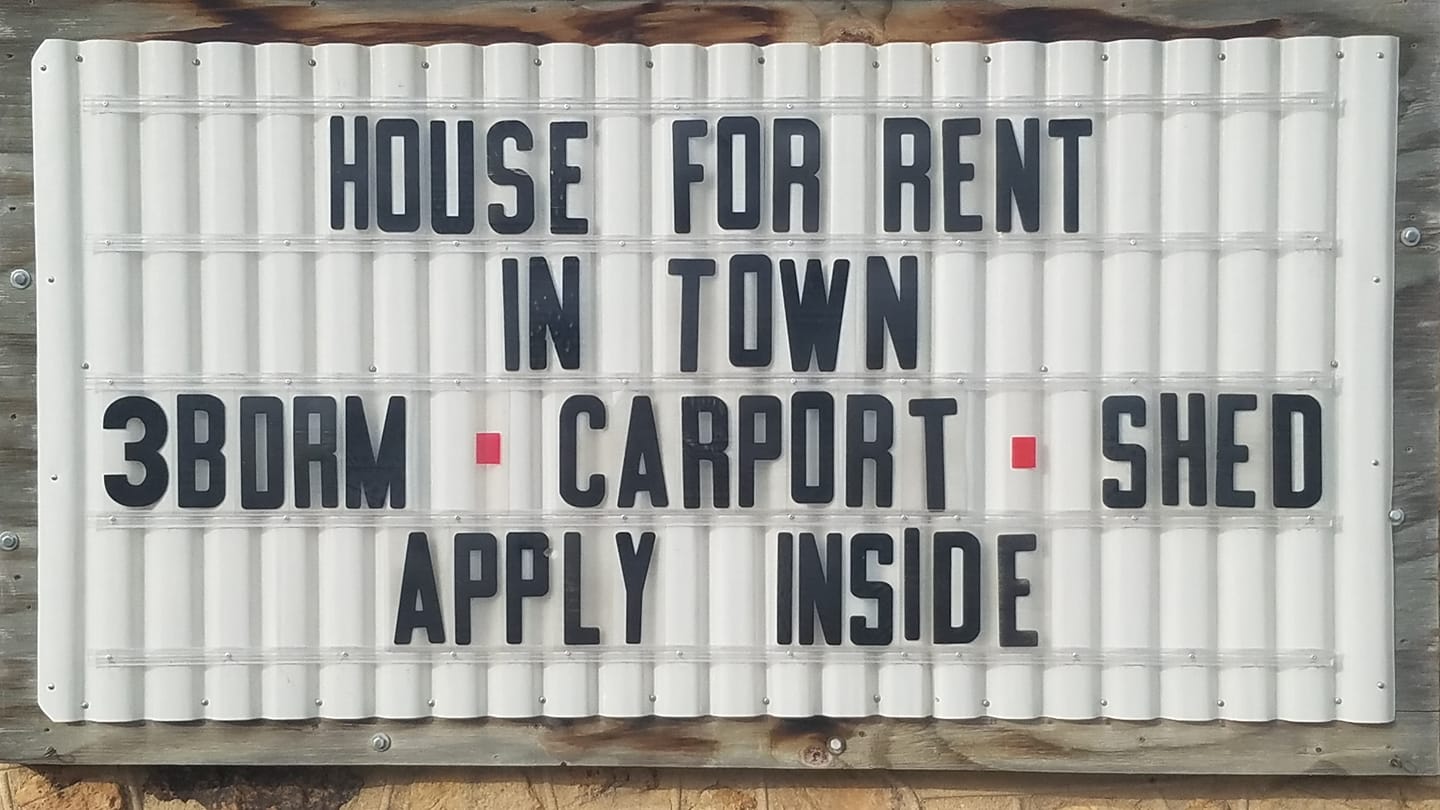 HOUSE FOR RENT
IN TOWN
3BDRM ▪ CARPORT ▪ SHED
APPLY INSIDE